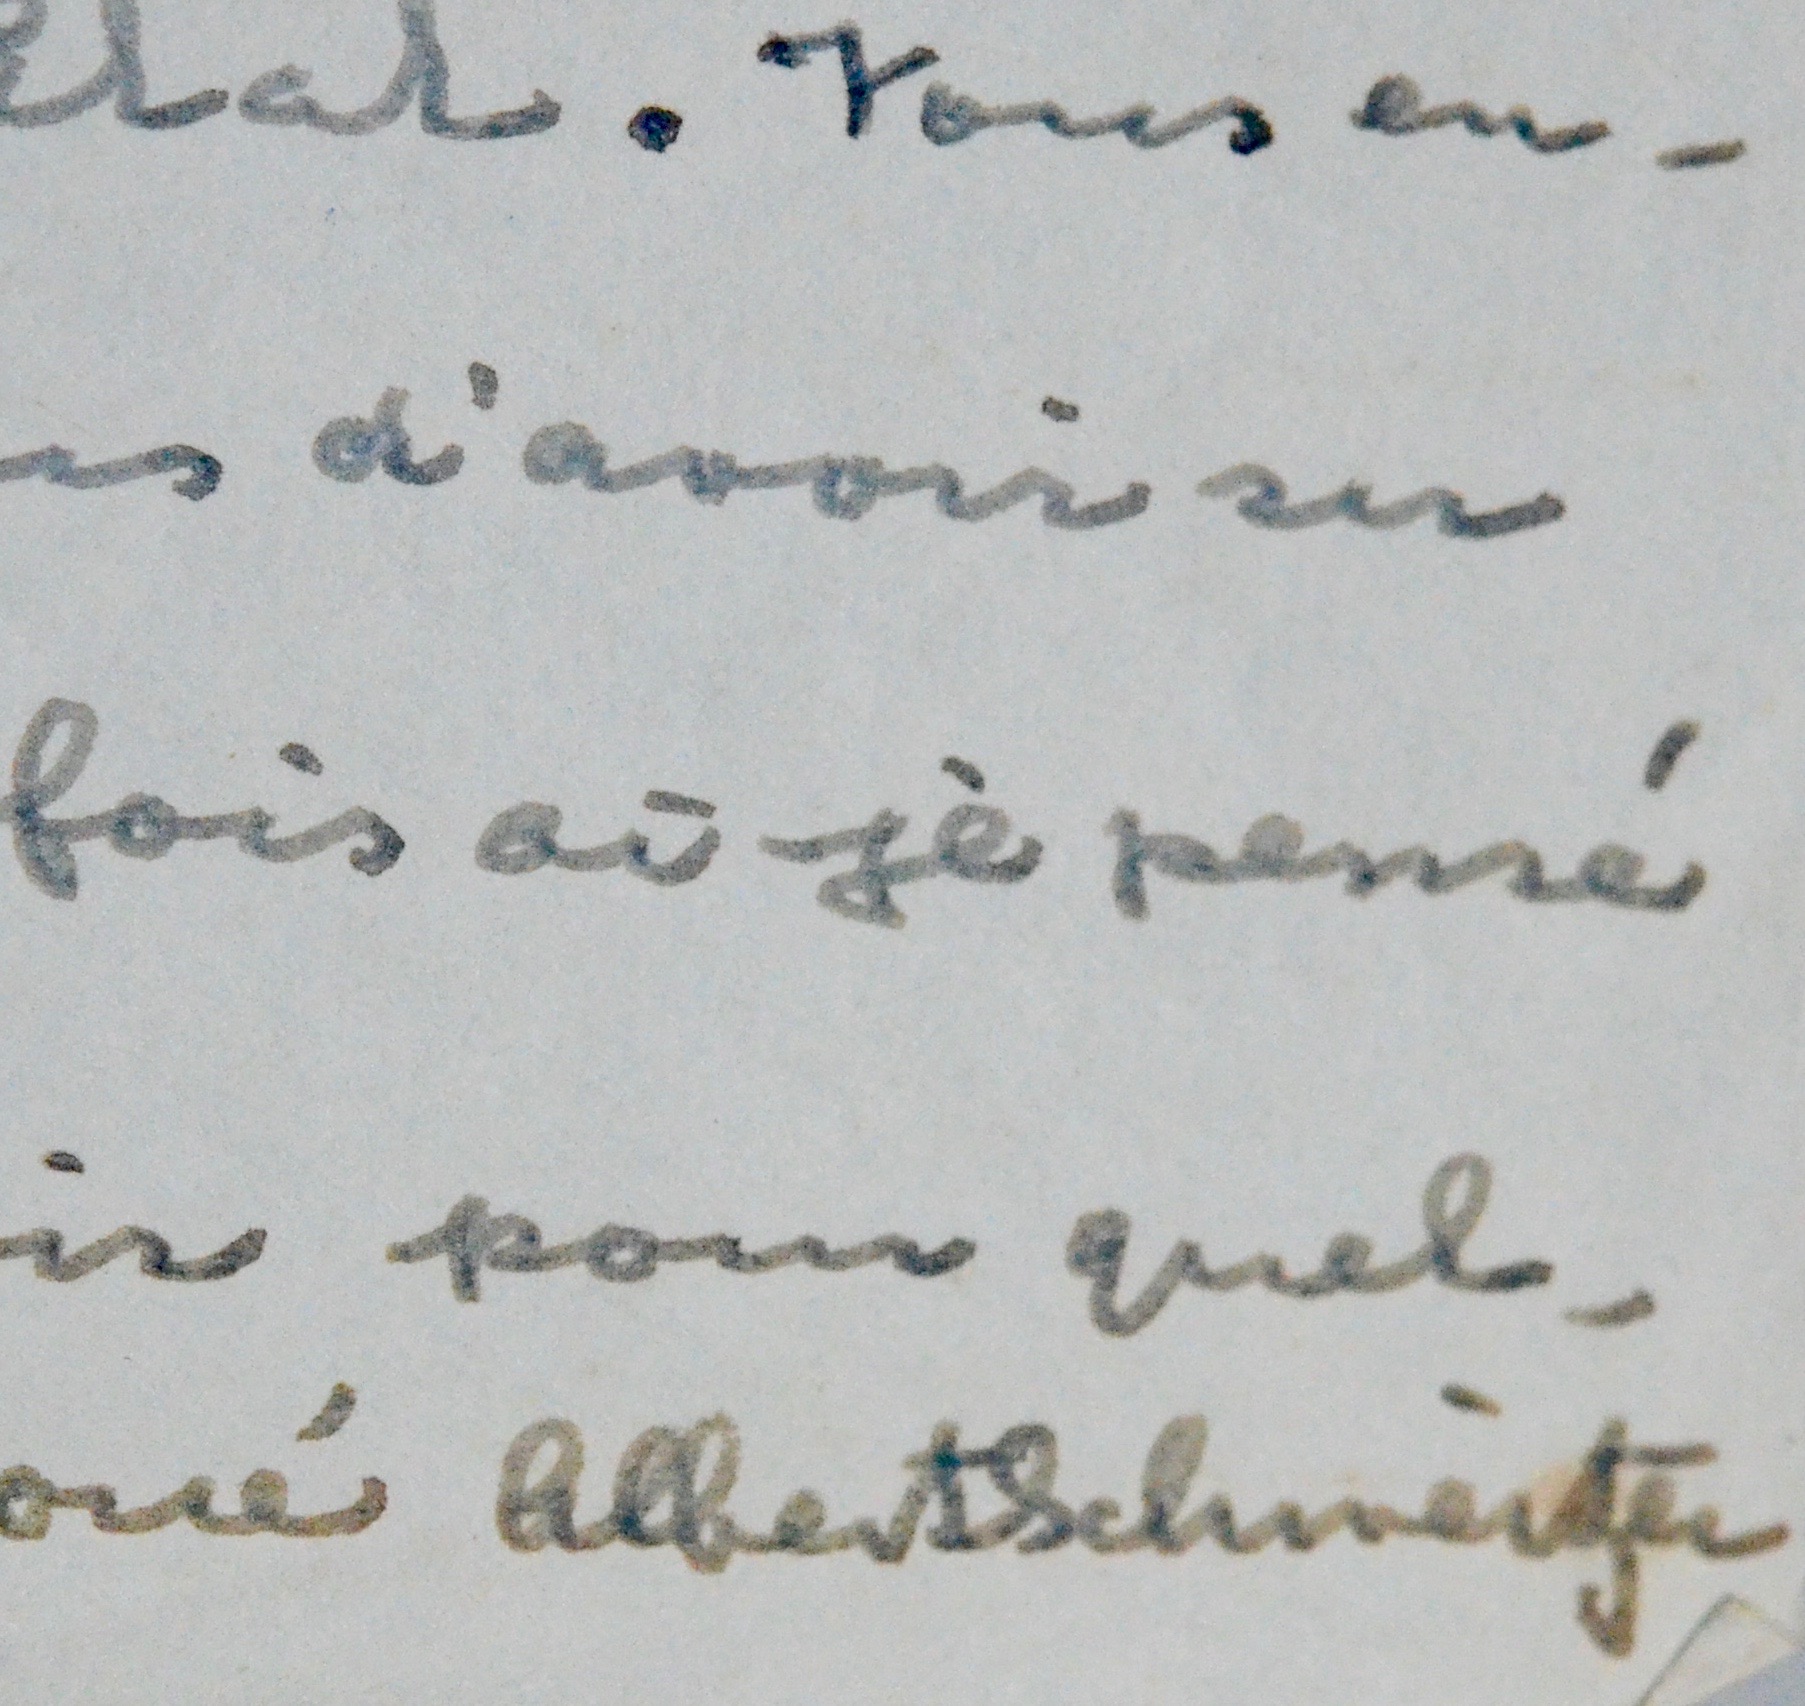 . Vous en-
d'avoir sur
fois où je pensé
pour quel-
Albert Schweitzer